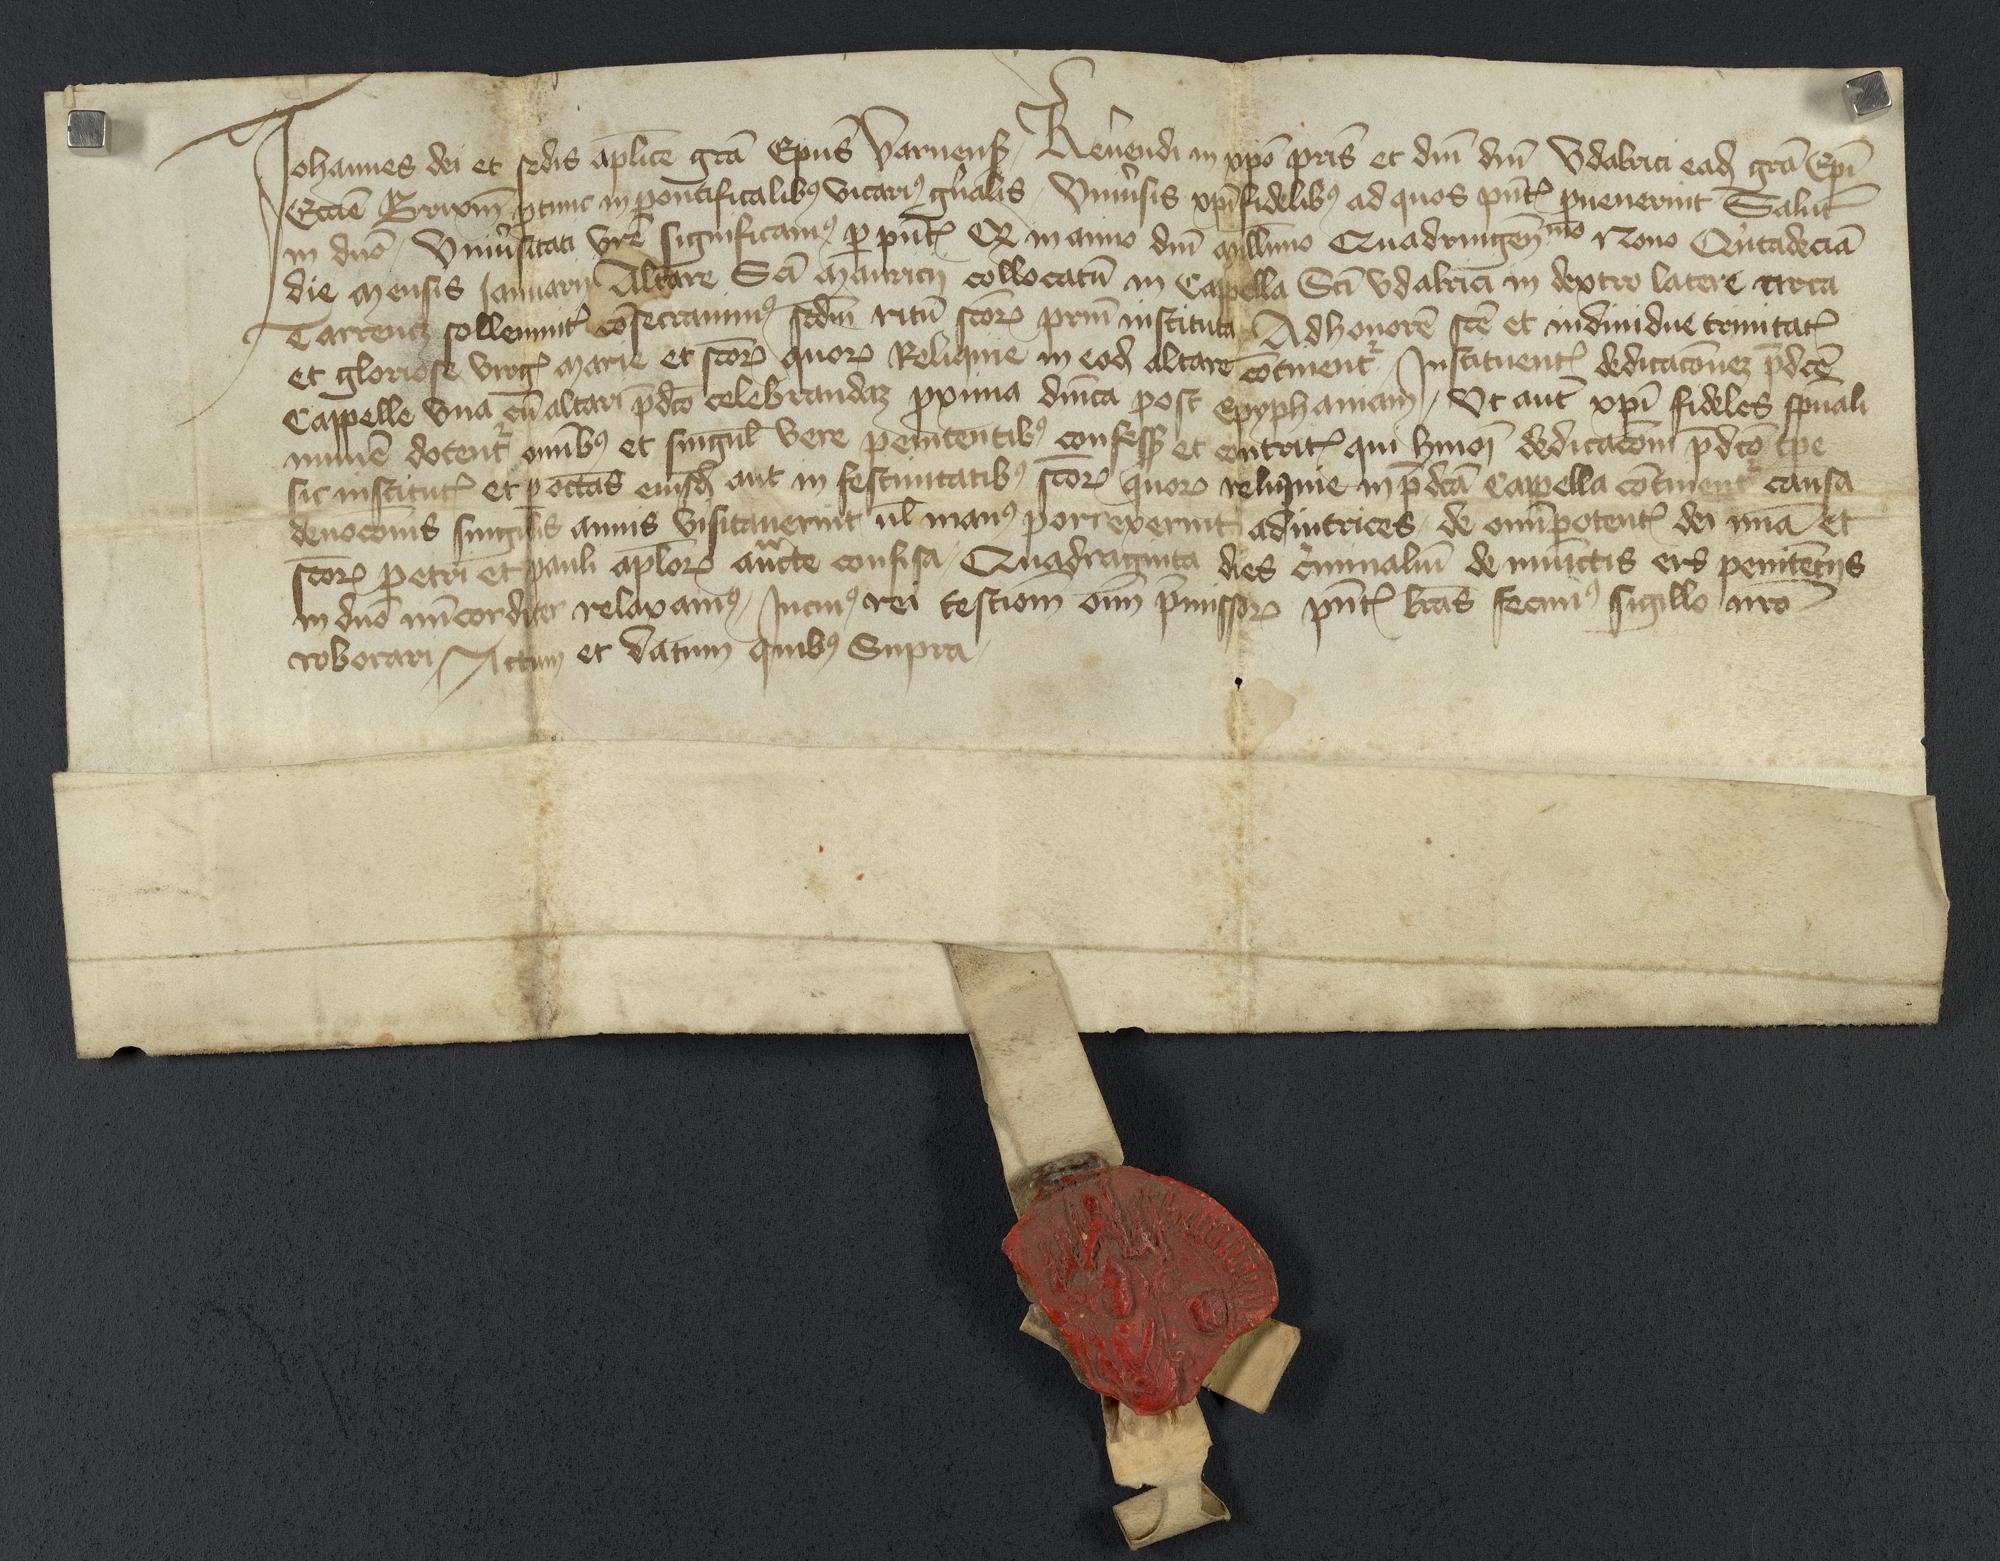 Johannes dei et sedis aplice gra Epus Varuens / Reuendi in xpo pris et dni dni Vdalrici ead gra Epi
Eccie Brixin ptunc in pontificalibus vicarius gnalis / Vniusis xpifidelibus ad quos pnt puenerint Salut
in dno / Vniusitati vre significamus p pnt Q in anno dni millimo Quadringenmo Nono Quitadecia
die mensis Januarii Altare Sci Mauricii collocatu in Cappella Sci Vdalrici in dextro latere circa
Tarrencz sollempnit cosecrauimus scdm ritu scor prm instituta Ad honore sce et indiuidue trinitat
et gloriose virgis Marie et scor quor Reliquie in eod altare cotinent / Instituent dedicacoez pdce
Cappelle vna cu altari pdco celebrandaz pxima dnica post Epyphaniam / Vt aut xpi fideles spuali
mune dotent omibus et singul vere penitentibus confess et contrit qui hmoi dedicacom pdco tpe
sic institut et p octas eiusd aut in festiuitatibus scor quor reliquie in pdca Cappella cotinent causa
deuocois singulis annis visitauerint ul manus porrexerint adiutrices / de omipotent dei mia et
scor Petri et Pauli aplor aucte confisa / Quadraginta dies criminaliu de iniuctis eis penitecijs
in dno miicorditer relaxamus / In cuius rei testiom oim pmissor pnt lras fecimus sigillo nro
roborari / Actum et datum quibus Supra /